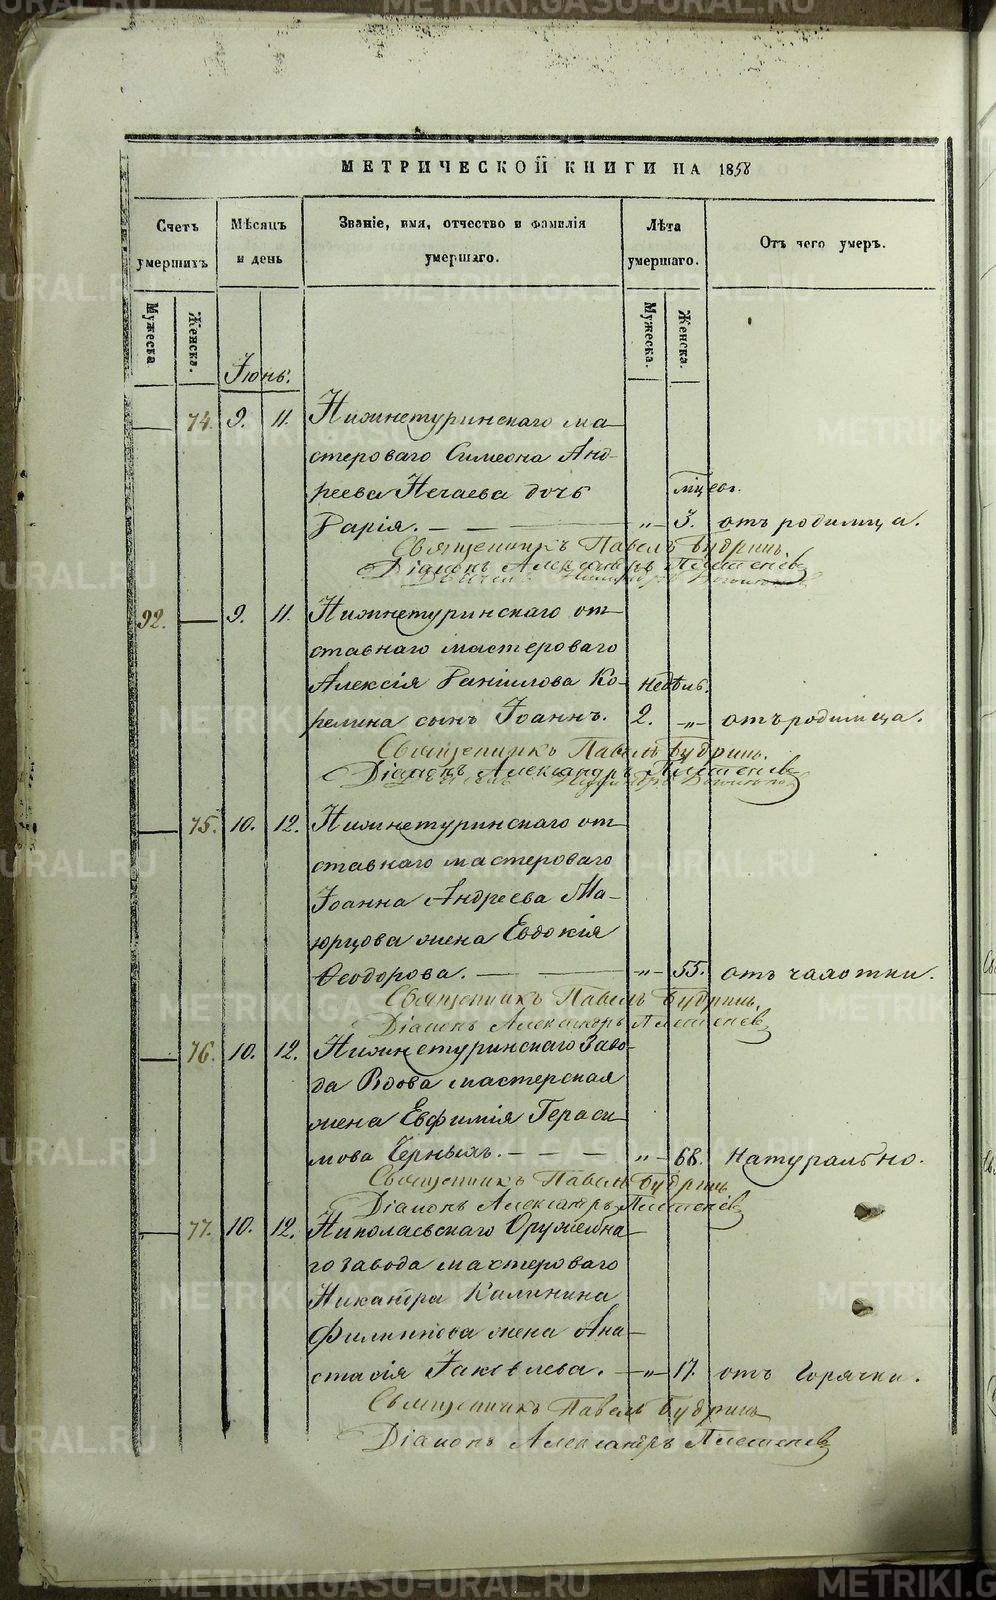 МЕТРИЧЕСКОЙ КНИГИ НА 1858
Счетъ умершихъ
Мѣсяцъ и день
Званіе, имя, отчество и фамилія умершаго.
Лѣта умершаго.
Отъ чего умеръ.
Мужеска
Женска.
Мужеска.
Женска.
Іюнь.
74. 9. 11. Нижнетуринскаго ма-
стероваго Симеона Анд-
реева Нечаева дочь
мѣсяц.
Марія. — — — „ — 3. отъ родимца.
Священникъ Павелъ Будринъ.
Діаконъ Александръ
92. — 9. 11. Нижнетуринскаго от-
ставнаго мастероваго
Алексія Даніилова Ко- недѣль.
релина сынъ Іоаннъ. 2. — „ — отъ родимца.
Священникъ Павелъ Будринъ.
Діаконъ Александръ
— 75. 10. 12. Нижнетуринскаго от-
ставнаго мастероваго
Іоанна Андреева Ма-
юрцова жена Евдокія
Ѳеодорова. — — „ — 55. отъ чахотки.
Священникъ Павелъ Будринъ.
Діаконъ Александръ
— 76. 10. 12. Нижнетуринскаго заво-
да вдова мастерская
жена Евфимія Гераси-
мова Черныхъ. — — — „ — 68. Натурально.
Священникъ Павелъ Будринъ
Діаконъ Александръ
— 77. 10. 12. Николаевскаго Оружейна-
го завода мастероваго
Никандра Калинина
Филиппова жена Ана-
стасія Іаковлева. — „ — 17. отъ Горячки.
Священникъ Павелъ Будринъ
Діаконъ Александръ
METRIKI.GASO-URAL.RU